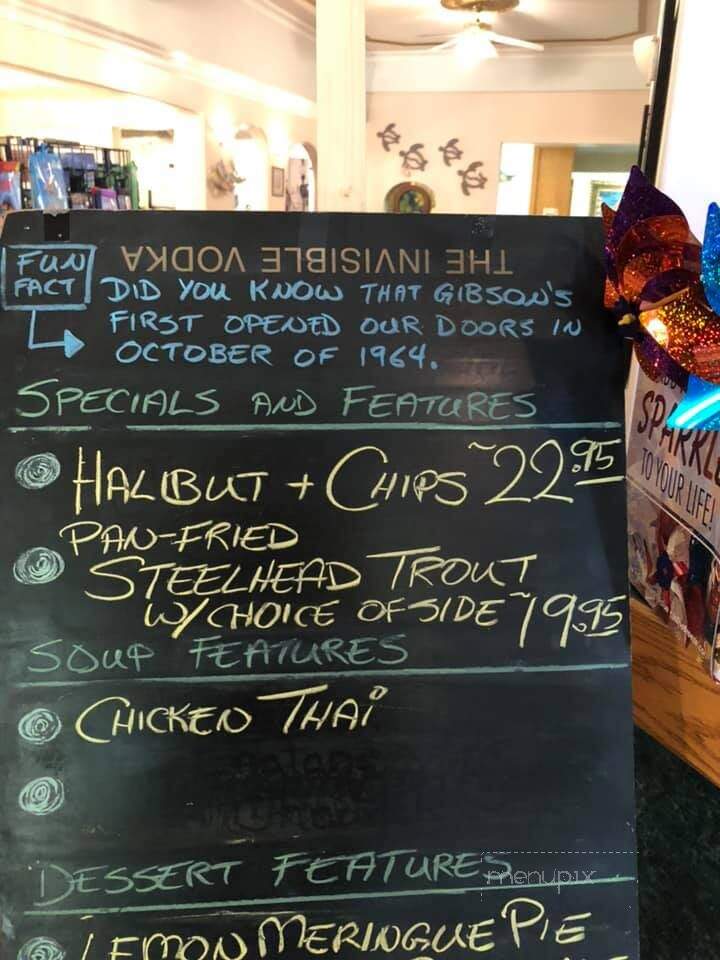 THE INVISIBLE VODKA
FUN
FACT
DID YOU KNOW THAT GIBSON'S
FIRST OPENED OUR DOORS IN
OCTOBER OF 1964.
SPECIALS AND FEATURES
HALIBUT + CHIPS ~22.95
PAN-FRIED
STEELHEAD TROUT
W/ CHOICE OF SIDE ~19.95
SOUP FEATURES
CHICKEN THAI
DESSERT FEATURES
LEMON MERINGUE PIE
TO YOUR LIFE!
menupix